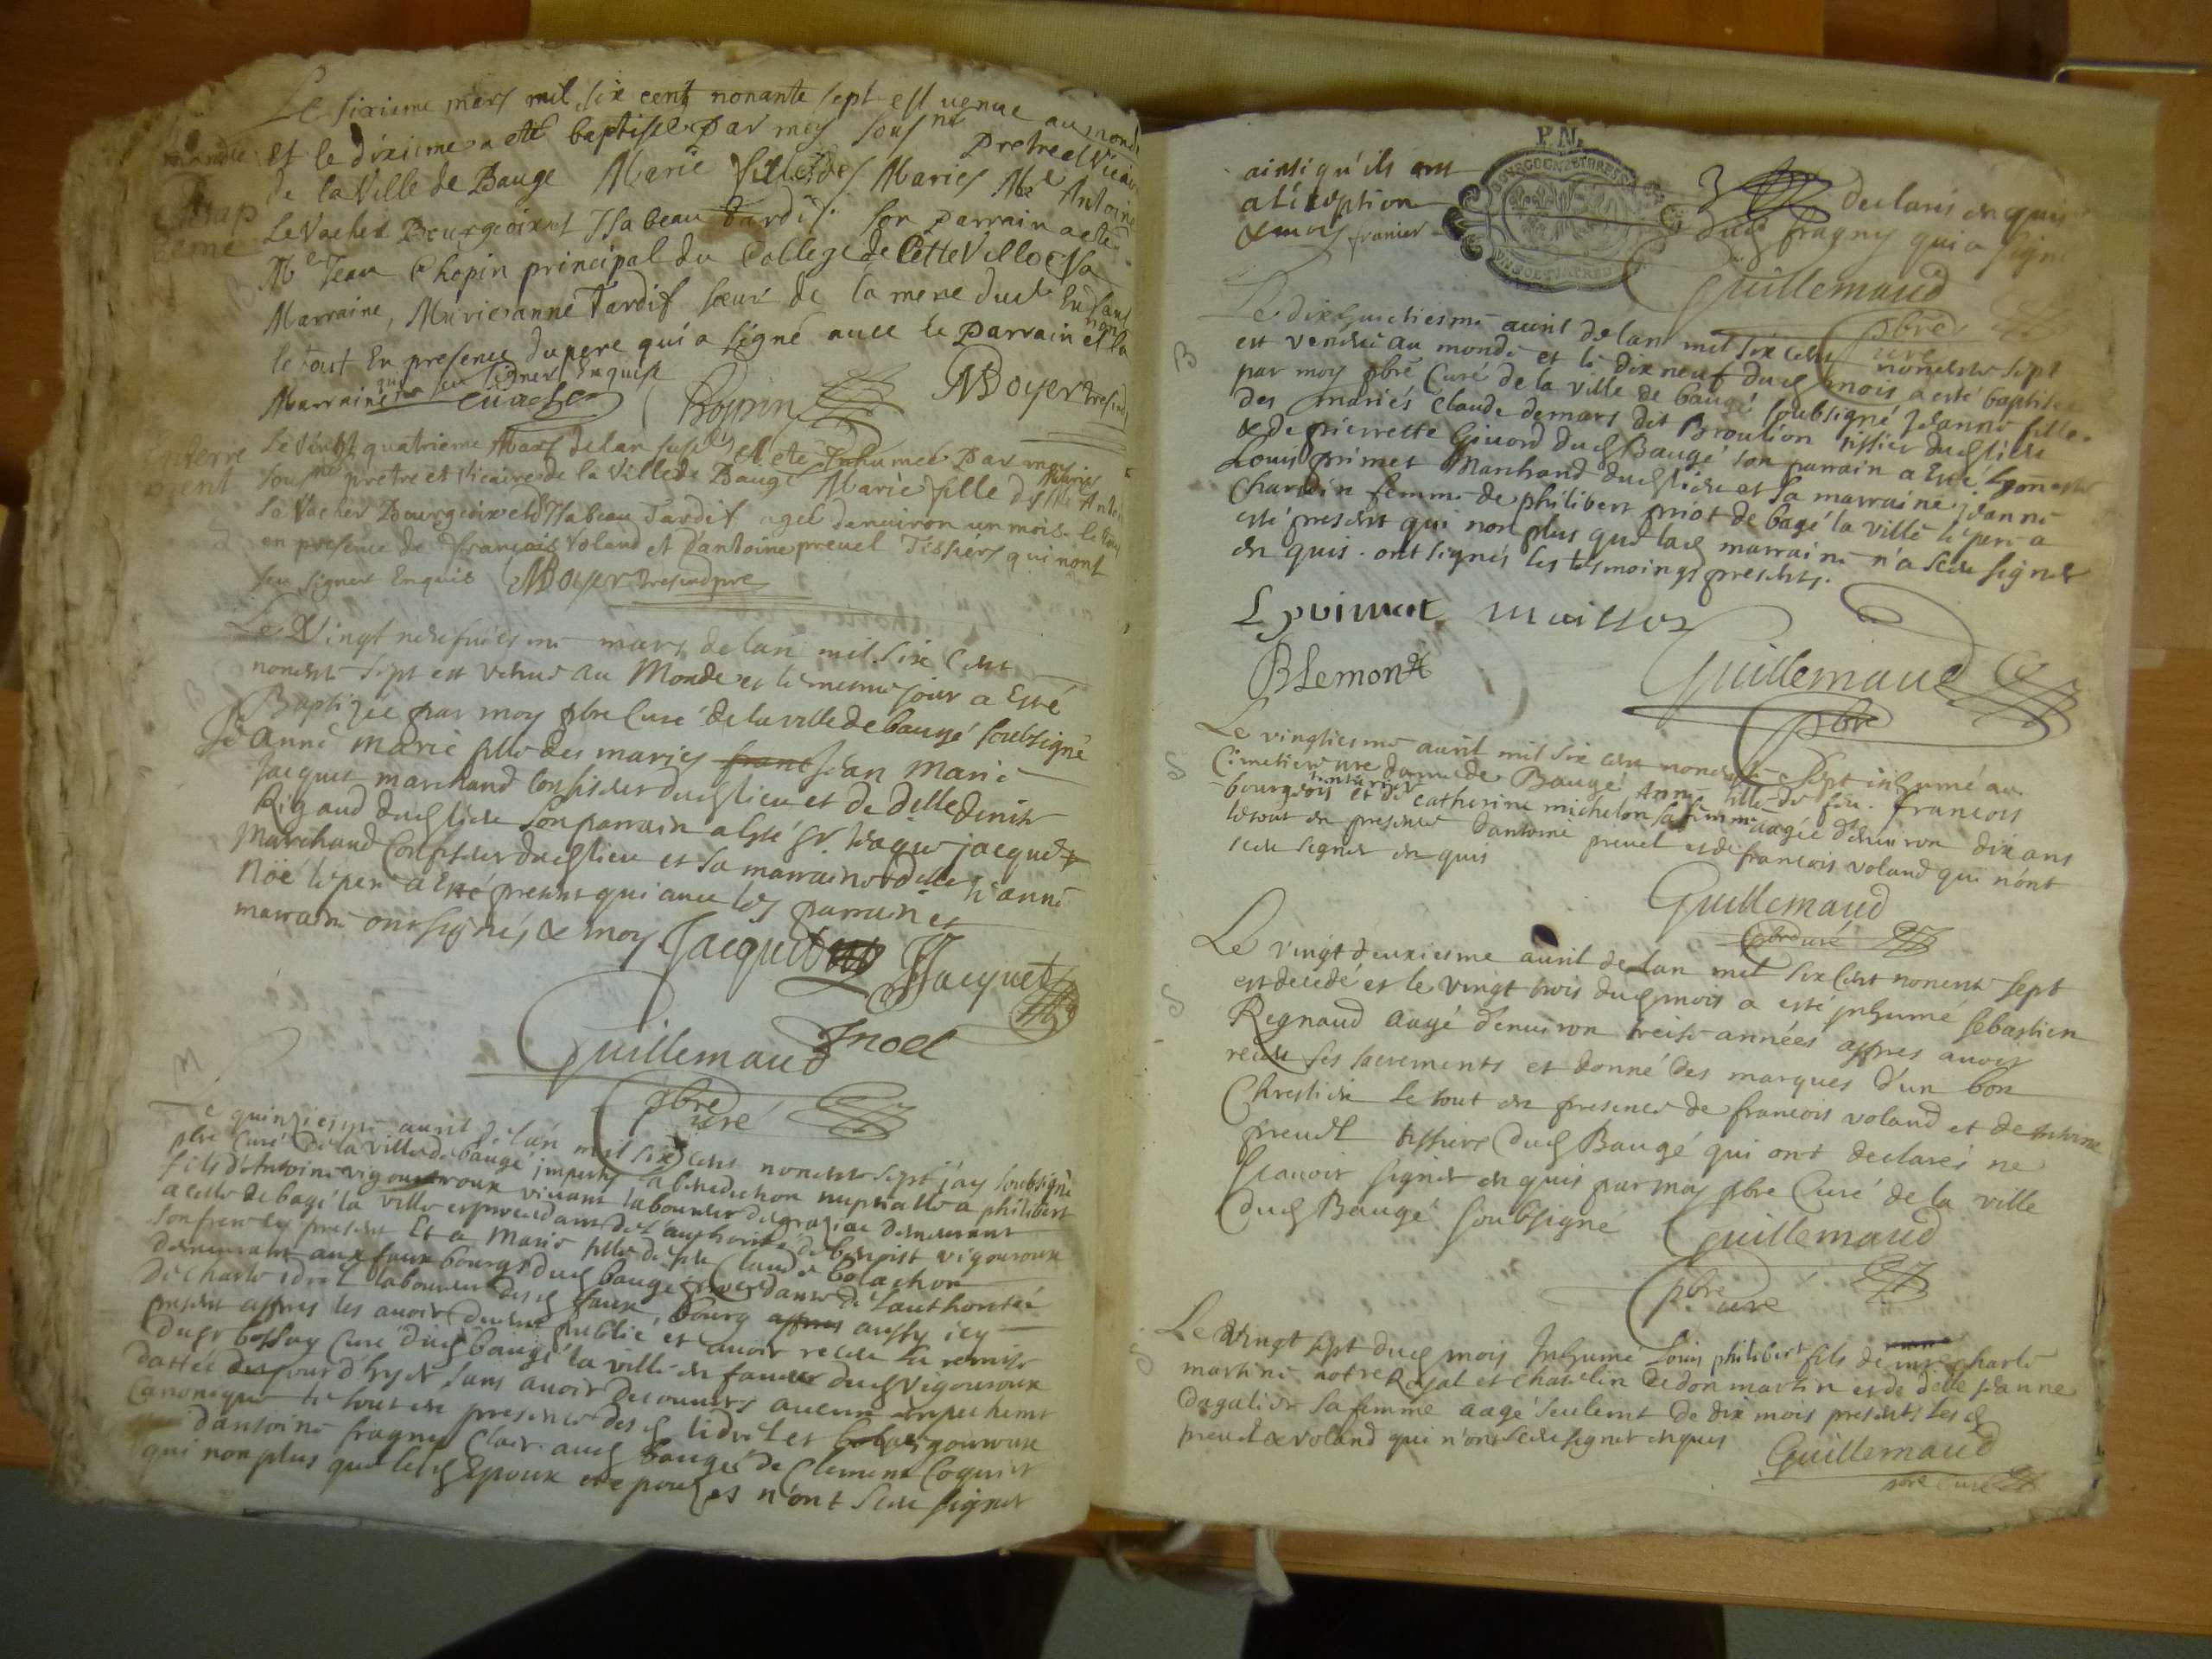 Le sixieme mars mil six cent nonante sept est venue au monde
et le dixieme a eté baptisée par moy sousné Pretre et Vicaire
de la Ville de Baugé Marie fille des Maries Me Antoine
Le Vacher Bourgeois et Isabeau Tardif. son parrain a eté
Me Jean Chopin principal du College de Cette Ville et Sa
Marraine, Marie anne Tardif sœur de la mere dud. Enfant
le tout En presence du pere qui a signé avec le Parrain et non la
Marraine qui n'a sceu signer Enquise
MBoyer
Le Vingt quatrieme Mars de lan susd. a eté Inhumée Par moy
sousné pretre et vicaire de la Ville de Baugé Marie fille des Mariés Me Antoine
Le Vacher Bourgeois et d'Isabeau Tardif agée denviron un mois. le tout
en presence de François Voland et d'antoine prevel Tissiers qui n'ont
sceu signer Enquis MBoyer
Le Vingt mars de lan mil six cent
nonente sept est venue au Monde et le mesme jour a Esté
Baptizée par moy pbre Curé de la ville de baugé soubsigné
Jeanne Marie fille des maries franc Jean Marie
Jacquet marchand Confisseur dud lieu et de delle denise
Rigaud dud lieu Son parrain a Esté Sr. jacquet
Marchand Confisseur dud lieu et sa marraine delle jeanne
Noë le pere a Esté present qui avec les parrain et
marraine ont signés & moy. Jacquet JJacquet
Jnoel
Guillemaud
pbre Curé
M
Le quinziesme avril de lan mil six cent nonente sept j'ay soubsigné
pbre Curé de la ville de baugé imparty la benediction nuptialle a philibert
fils d'Antoine vigouroux vivant laboureur de demeurant
a celle de bagé la ville et procedant de l'authorité de benoist vigouroux
son frere icy present Et a Marie fille de feu Claude bolachon
demeurant aux faux bourgs dud baugé procedant de l'authorité
de Charle laboureur desd faux bourg affres aussy icy
present affres les avoir dument publié et avoir receu la remise
du sr bossay Curé dud baugé la ville en faveur dud vigouroux
dattée du jour d'hyer sans avoir decouvert aucun empechemt
Canonique le tout en presence desd lidriet et vigouroux
dantoine fragny Clair aud baugé de Clement Coquier
qui non plus que lesd Epoux et epouzes n'ont sceu signer
ainsi qu'ils ont declaré enquis
a l'exeption dud fragny qui a signé
& moy franier
Guillemaud
pbre Curé
B
Le dix huictiesme avril de lan mil six cent nonente sept
est venue au monde et le dix neuf dud mois a esté baptisée
par moy pbre Curé de la ville de baugé soubsigné Jeanne fille
des mariés Claude demars dit Broution tissier dud lieu
& de pierrette Givord dud Baugé son parrain a Esté Lyonet
Louis primet Marchand dud lieu et sa marraine jeanne
Chardin femme de philibert priot de bagé la ville le pere a
esté present qui non plus que lad marraine n'a sceu signer
en quis. ont signés les tesmoings presents.
L primet maillot
BLemont
Guillemaud
pbre Curé
S
Le vingtiesme avril mil six cent nonente Sept inhumé au
Cimetiere dame de Baugé Anne fille de feu. francois
bourgeois et de catherine michelon sa femme aagée d'environ dix ans
le tout en presence dantoine prevel et de francois voland qui n'ont
sceu signer en quis
Guillemaud
pbre Curé
S
Le vingt deuxiesme avril de lan mil six cent nonente sept
est decedé et le vingt trois dud mois a esté inhumé sebastien
Regnaud aagé d'environ treise années affres avoir
receu ses sacrements et donné des marques d'un bon
Chrestien le tout en presence de francois voland et de Antoine
prevel tissiers dud Baugé qui ont declarés ne
scavoir signer en quis par moy pbre Curé de la ville
dud Baugé soubsigné Guillemaud
pbre Curé
S
Le vingt sept dud mois Inhumé Louis philibert fils de mre charle
martine notre Royal et chatelin de don martin et de delle jeanne
Dagallier sa femme aagé seulemt de dix mois presents lesd
prevel & voland qui n'ont sceu signer enquis
Guillemaud
pbre Curé